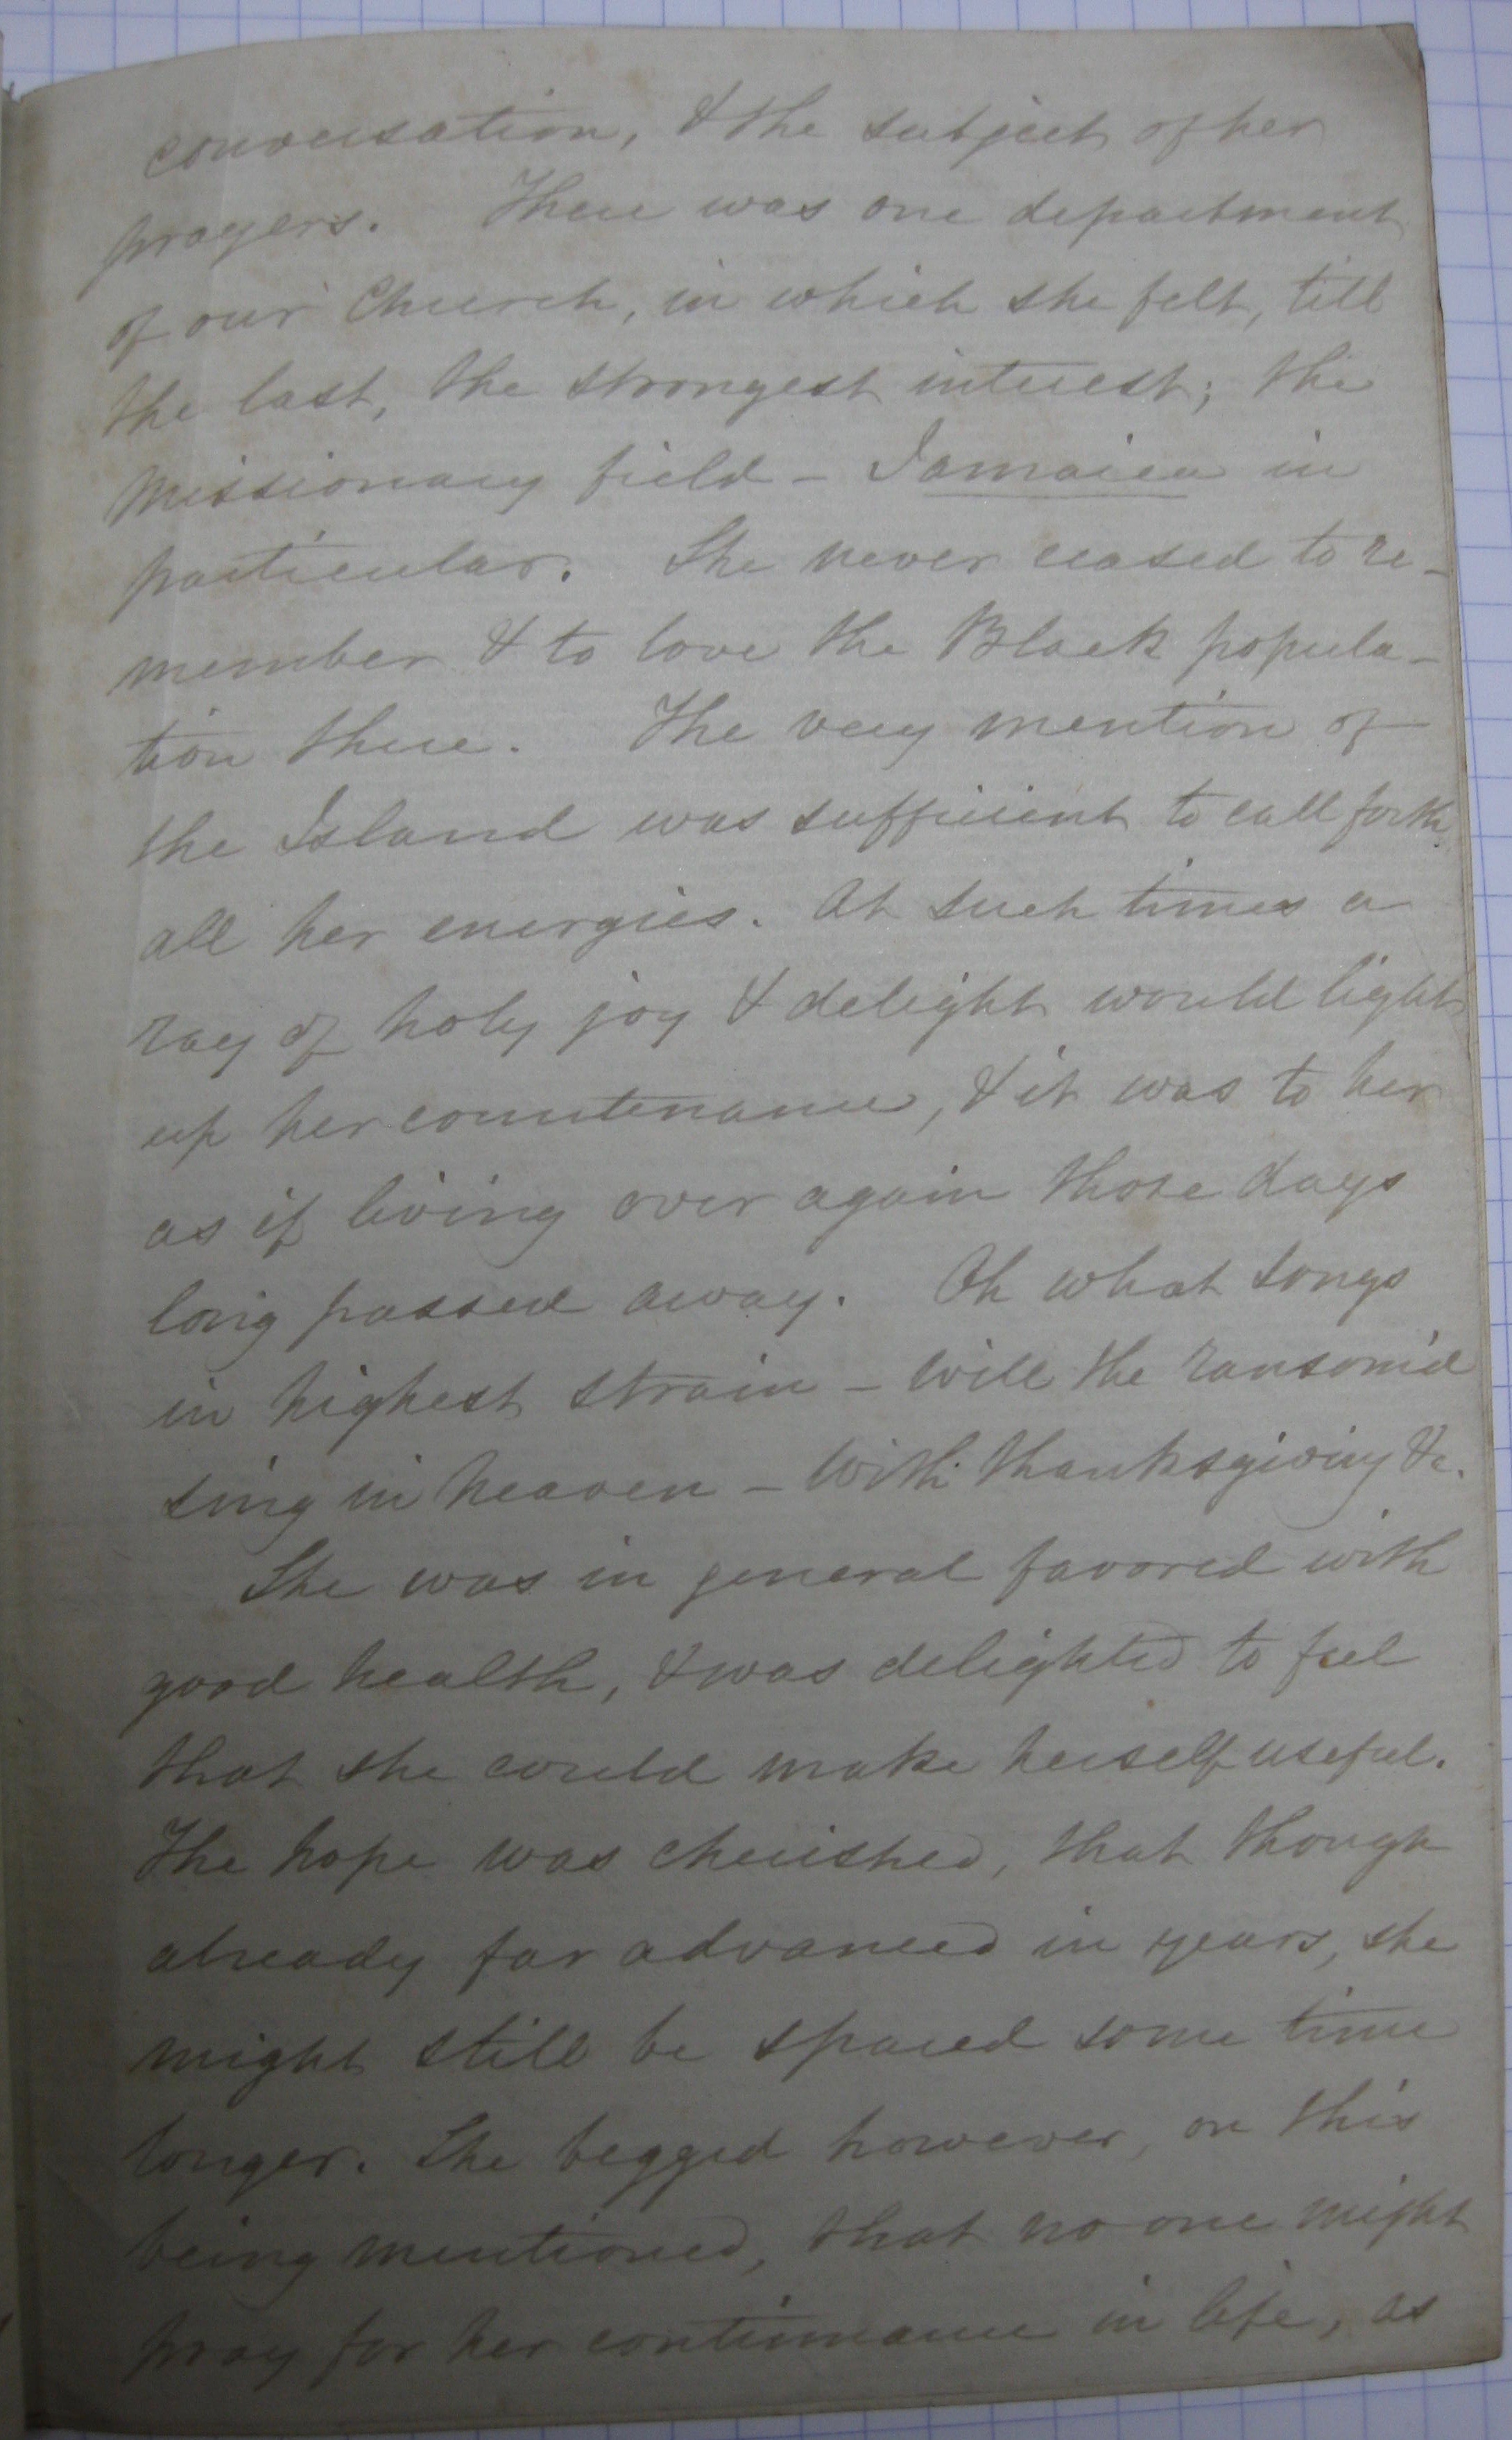 conversation, & the subject of her
prayers. There was one department
of our Church, in which she felt, till
the last, the strongest interest; the
Missionary field - Jamaica in
particular. She never ceased to re-
member & to love the Black popula-
tion there. The very mention of
the Island was sufficient to call forth
all her energies. At such times a
ray of holy joy & delight would light
up her countenance, & it was to her
as if living over again those days
long passed away. Oh what songs
in highest strain - Will the ransom'd
sing in heaven - With thanksgiving &c.
She was in general favored with
good health, & was delighted to feel
that she could make herself useful.
The hope was cherished, that though
already far advanced in years, she
might still be spared some time
longer. She begged however, on this
being mentioned, that no one might
pray for her continuance in life, as